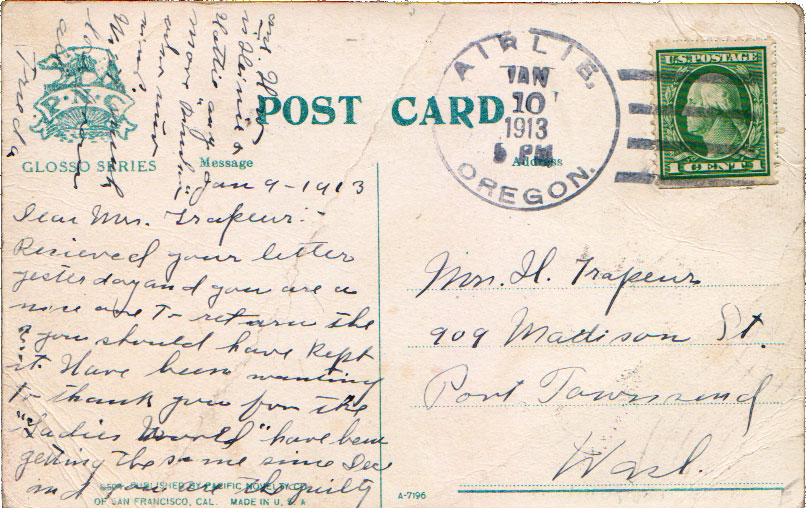 POST CARD
P.N.C.
GLOSSO SERIES
Message
Address
AIRLIE,
JAN
10
1913
5 PM
OREGON.
U.S. POSTAGE
1 CENT 1
Jan 9 - 1913
Dear Mrs. Trapeur:-
Recieved your letter
yesterday and you are a
nice one to return the
you should have kept
it. Have been wanting
to thank you for the
"Ladies World" have been
getting the same since Dec
and you are the guilty
and
more
mind.
Trieda
Mrs. H. Trapeur
909 Madison St.
Port Townsend
Wash.
PUBLISHED BY PACIFIC NOVELTY CO.
OF SAN FRANCISCO, CAL. MADE IN U.S.A
A-7196